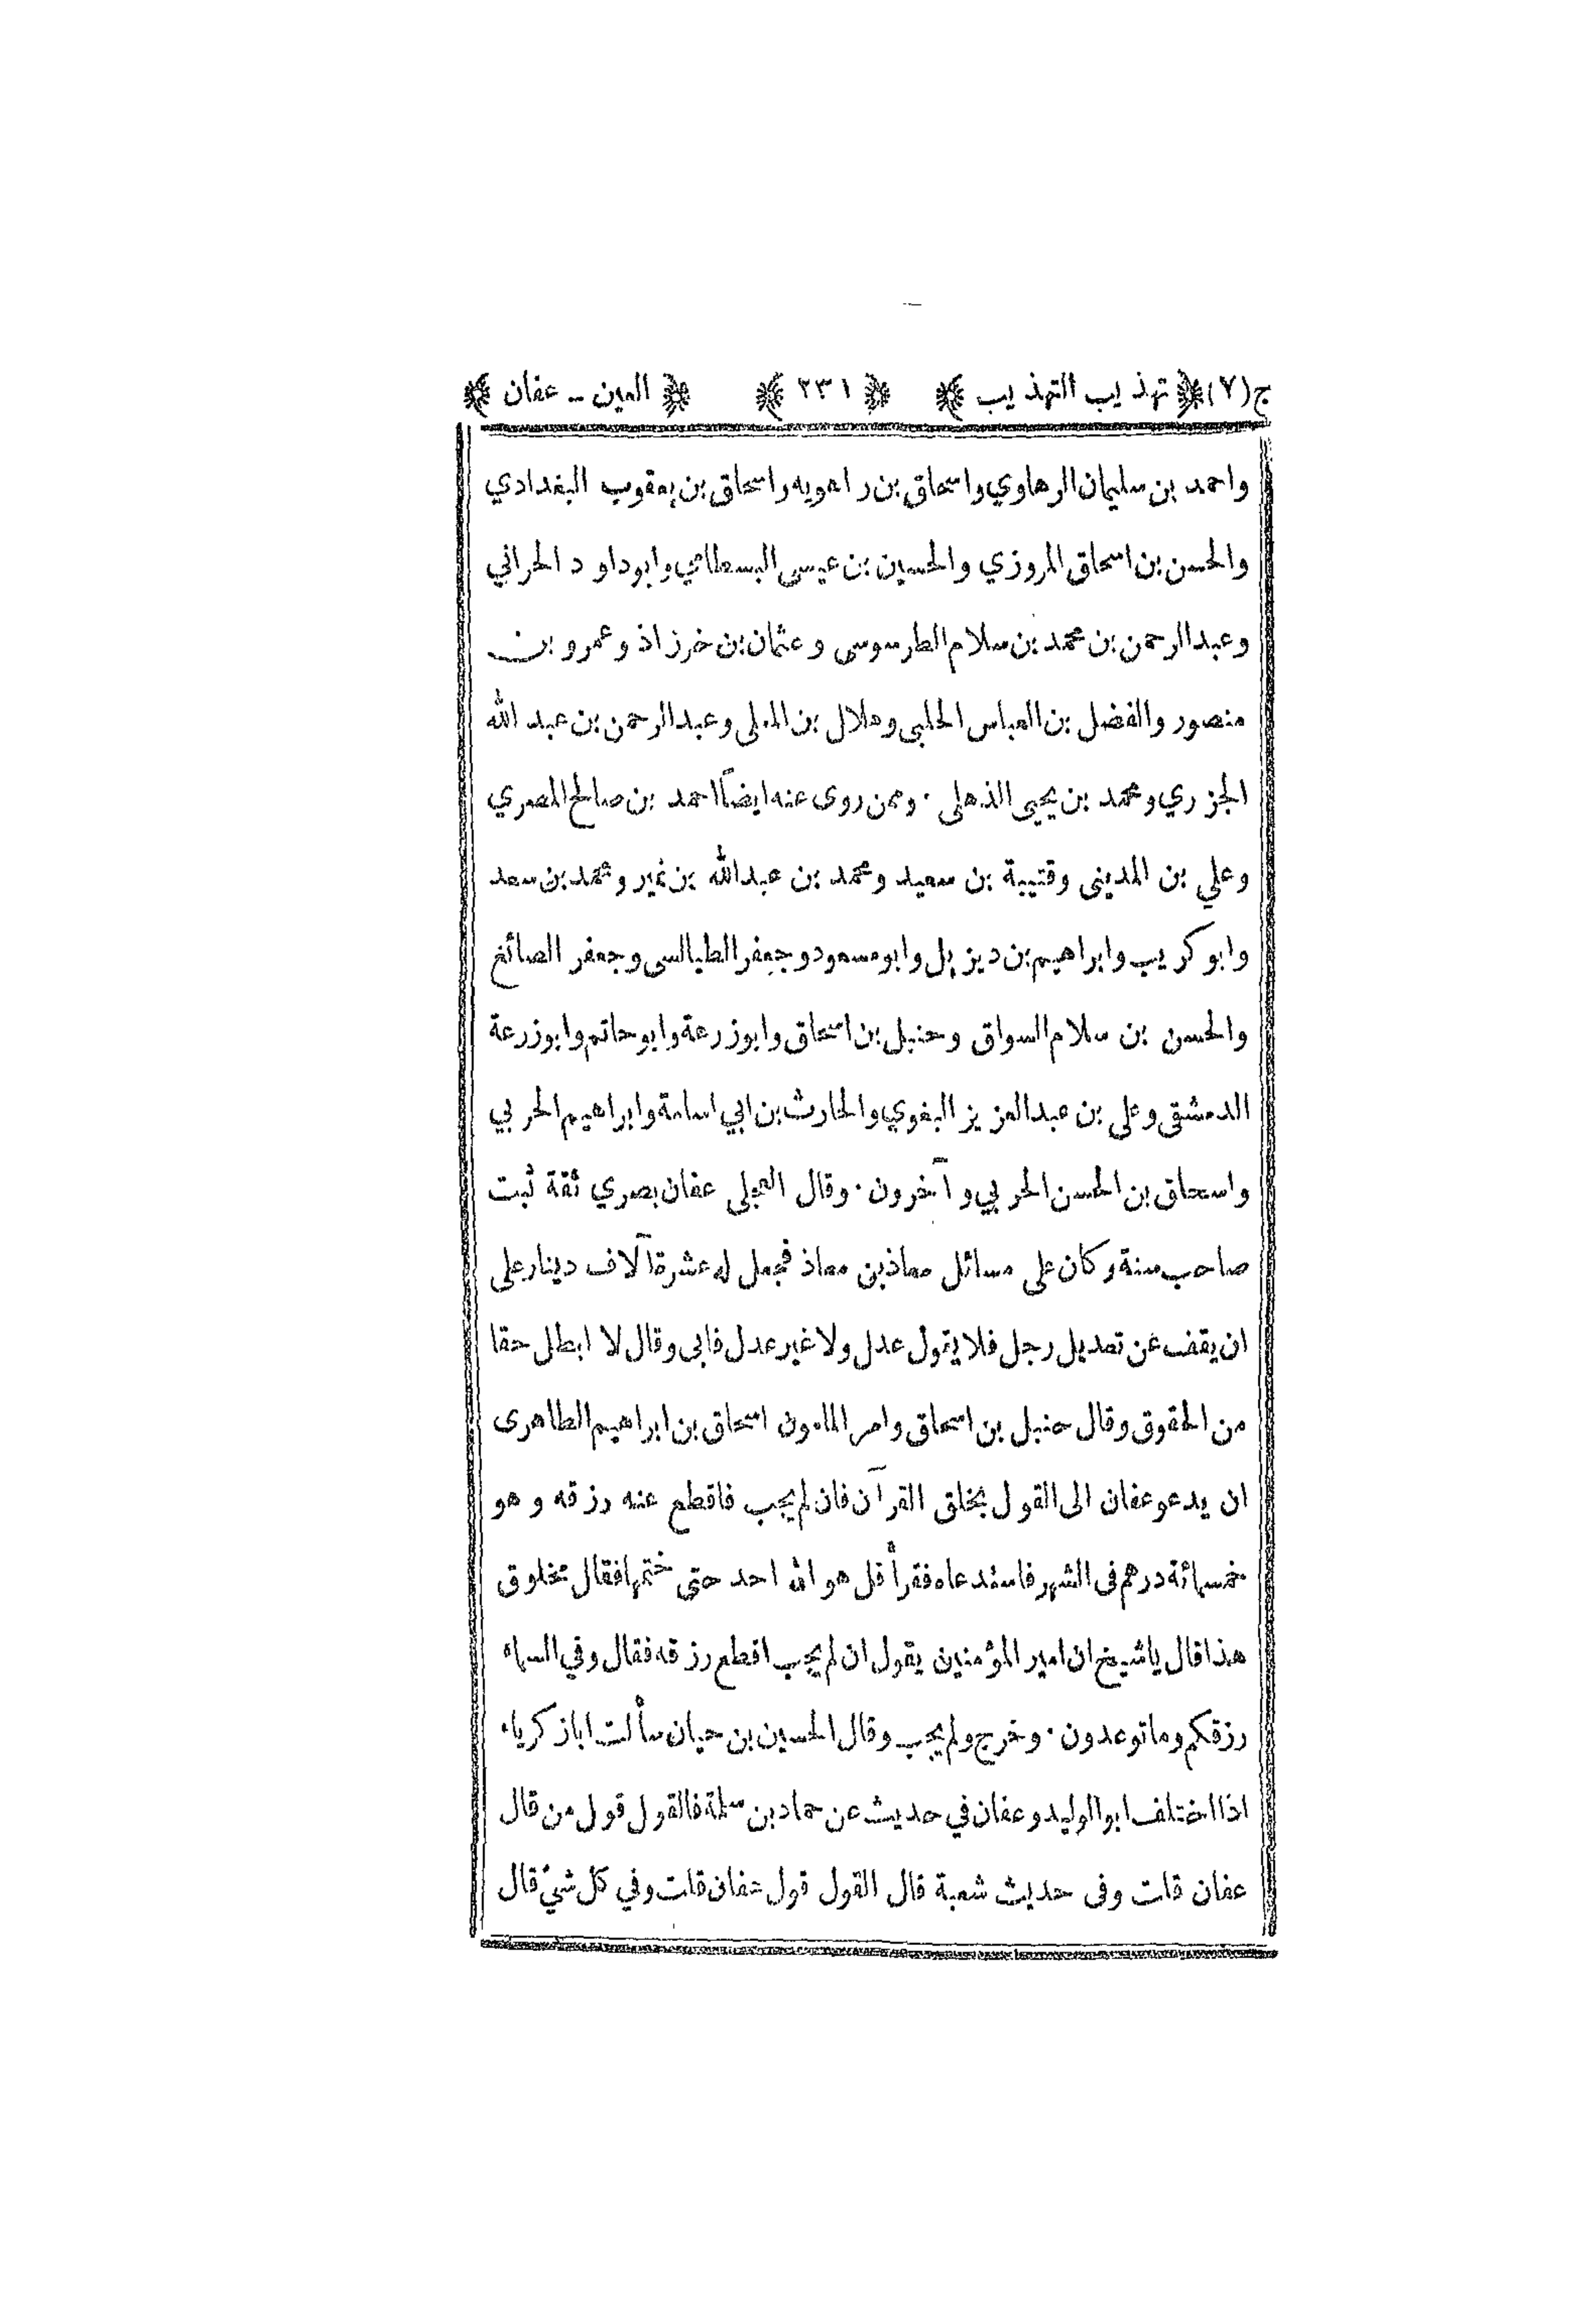 ج(٧) ﴿ تهذيب التهذيب ﴾ ﴿ ٢٣١ ﴾ ﴿ العين - عفان ﴾
واحمد بن سليمان الرهاوي واسحاق بن راهويه واسحاق بن يعقوب البغدادي
والحسن بن اسحاق المروزي والحسين بن عيسى البسطامي وابوداود الحراني
وعبدالرحمن بن محمد بن سلام الطرسوسى وعثمان بن خرزاذ وعمرو بن
منصور والفضل بن العباس الحلبى وهلال بن العلى وعبدالرحمن بن عبدالله
الجزري ومحمد بن يحيى الذهلى · وممن روى عنه ايضاً احمد بن صالح المصري
وعلي بن المدينى وقتيبة بن سعيد ومحمد بن عبدالله بن نمير ومحمد بن سعد
وابو كريب وابراهيم بن ديزيل وابومسعود وجعفر الطيالسى وجعفر الصائغ
والحسن بن سلام السواق وحنبل بن اسحاق وابوزرعة وابوحاتم وابوزرعة
الدمشقى وعلى بن عبدالعزيز البغوي والحارث بن ابي اسامة وابراهيم الحربي
واسحاق بن الحسن الحربي وآخرون · وقال العجلى عفان بصري ثقة ثبت
صاحب سنة وكان على مسائل معاذ بن معاذ فجعل له عشرة آلاف دينار على
ان يقف عن تعديل رجل فلا يقول عدل ولا غير عدل فابى وقال لا ابطل حقا
من الحقوق وقال حنبل بن اسحاق وامر المامون اسحاق بن ابراهيم الطاهرى
ان يدعو عفان الى القول بخلق القرآن فان لم يجب فاقطع عنه رزقه وهو
خمسمائة درهم فى الشهر فاستدعاه فقرأ قل هو الله احد حتى ختمها فقال مخلوق
هذا قال ياشيخ ان امير المؤمنين يقول ان لم يجب اقطع رزقه فقال وفي السماء
رزقكم وما توعدون · وخرج ولم يجب وقال الحسين بن حيان سألت ابازكرياء
اذا اختلف ابوالوليد وعفان في حديث عن حماد بن سلمة فالقول قول من قال
عفان قلت وفى حديث شعبة قال القول قول عفان قلت وفي كل شئ قال